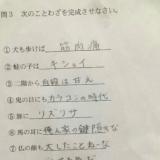 問3 次のことわざを完成させなさい。
①犬も歩けば 筋肉痛
②蛙の子は キショイ
③二階から 目線はせん
④鬼の目にも カラコンの時代
⑤旅に リズリサ
⑥馬の耳に 俺ん家の鍵隠すな
⑦仏の顔も 大したことねーな